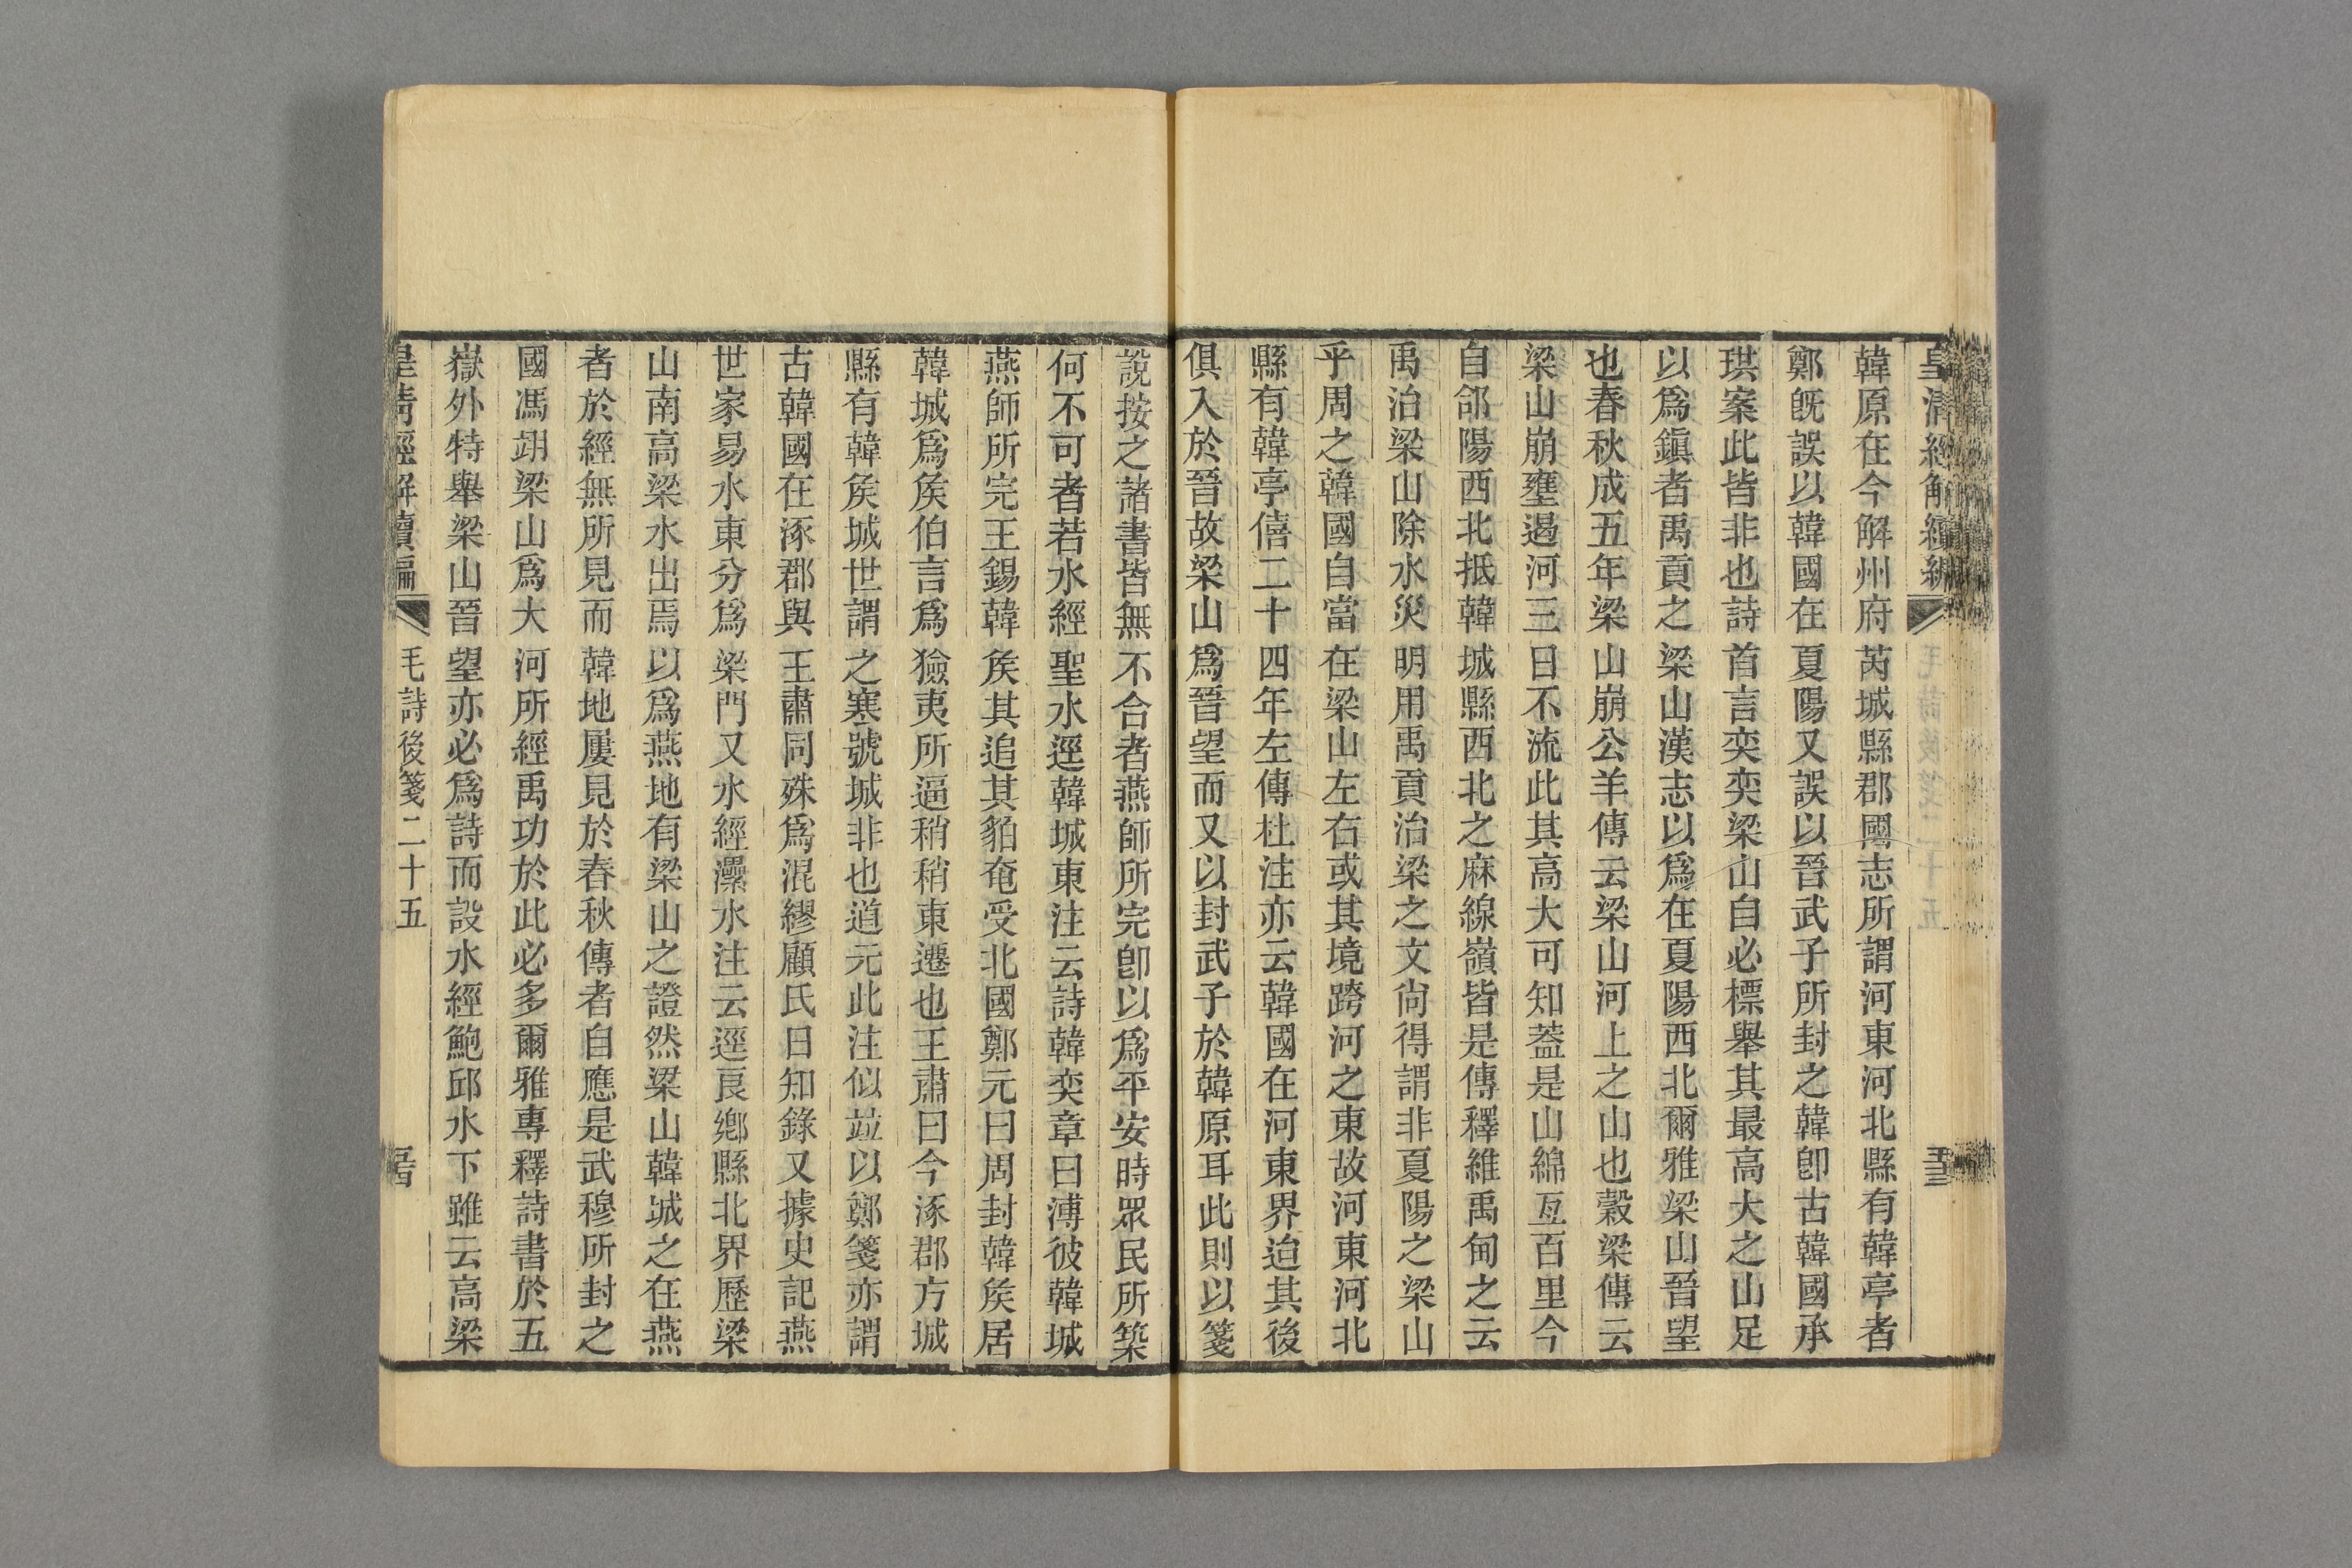 皇清經解續編
韓原在今解州府芮城縣郡國志所謂河東河北縣有韓亭者
鄭旣誤以韓國在夏陽又誤以晉武子所封之韓卽古韓國承
珙案此皆非也詩首言奕奕梁山自必標舉其最高大之山足
以爲鎭者禹貢之梁山漢志以爲在夏陽西北爾雅梁山晉望
也春秋成五年梁山崩公羊傳云梁山河上之山也穀梁傳云
梁山崩壅遏河三日不流此其高大可知葢是山綿亙百里今
自郃陽西北抵韓城縣西北之麻線嶺皆是傳釋維禹甸之云
禹治梁山除水災明用禹貢治梁之文尙得謂非夏陽之梁山
乎周之韓國自當在梁山左右或其境跨河之東故河東河北
縣有韓亭僖二十四年左傳杜注亦云韓國在河東界迫其後
俱入於晉故梁山爲晉望而又以封武子於韓原耳此則以箋
說按之諸書皆無不合者燕師所完卽以爲平安時眾民所築
何不可者若水經聖水逕韓城東注云詩韓奕章曰溥彼韓城
燕師所完王錫韓矦其追其貊奄受北國鄭元曰周封韓矦居
韓城爲矦伯言爲獫夷所逼稍稍東遷也王肅曰今涿郡方城
縣有韓矦城世謂之寒號城非也道元此注似竝以鄭箋亦謂
古韓國在涿郡與王肅同殊爲混繆顧氏日知錄又據史記燕
世家易水東分爲梁門又水經灅水注云逕良鄉縣北界歷梁
山南高梁水出焉以爲燕地有梁山之證然梁山韓城之在燕
者於經無所見而韓地屢見於春秋傳者自應是武穆所封之
國馮翊梁山爲大河所經禹功於此必多爾雅專釋詩書於五
嶽外特舉梁山晉望亦必爲詩而設水經鮑邱水下雖云高梁
皇清經解續編 毛詩後箋二十五